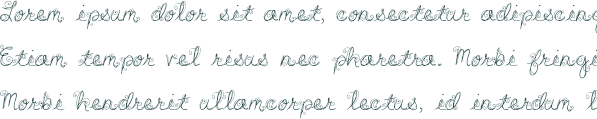 Lorem ipsum dolor sit amet, consectetur adipiscing
Etiam tempor vel risus nec pharetra. Morbi fringi
Morbi hendrerit ullamcorper lectus, id interdum l